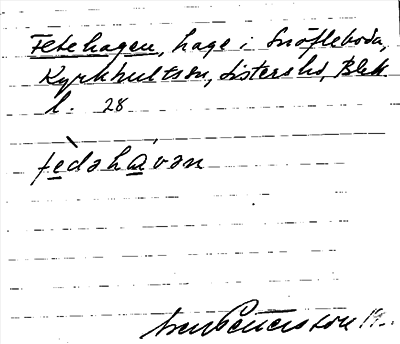 Fetehagen, hage i Snöfleboda,
Kyrkhults sn, Listers hd, Blek.
l. 28
fèdəhávən